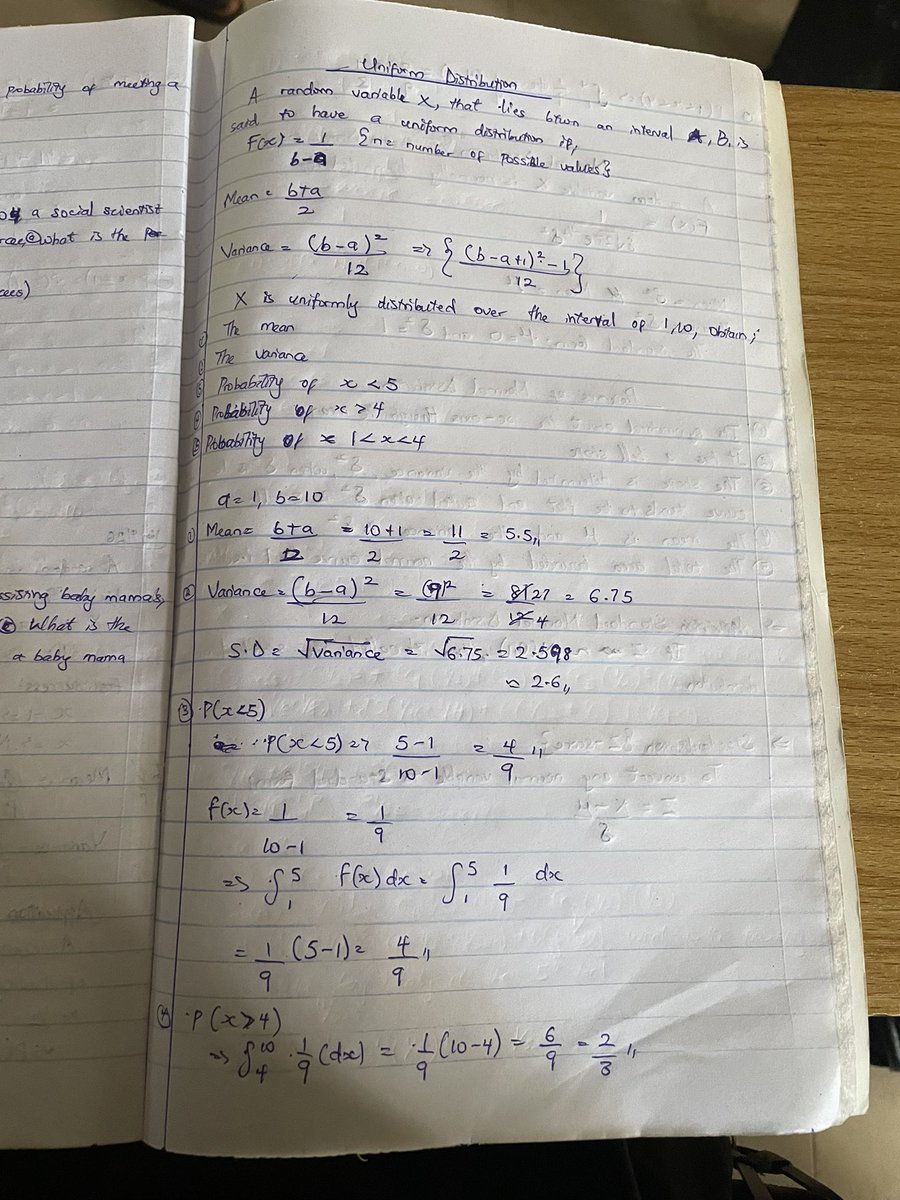 probability of meeting a
a social scientist
what is the
ces)
baby mama's,
What is the
a baby mama
Uniform Distribution
A random variable X, that lies btwn an interval A, B, is
said to have a uniform distribution if,
F(x) = 1/(b-a) {n = number of possible values}
Mean = (b+a)/2
Variance = (b-a)²/12 => {((b-a+1)² - 1)/12}
X is uniformly distributed over the interval of 1,10, obtain;
① The mean
② The variance
③ Probability of x < 5
④ Probability of x ≥ 4
⑤ Probability of 1 < x < 4
a = 1, b = 10
① Mean = (b+a)/2 = (10+1)/2 = 11/2 = 5.5,,
② Variance = (b-a)²/12 = (9)²/12 = 27/4 = 6.75
S.D = √Variance = √6.75 = 2.598
≈ 2.6,,
③ P(x<5)
∴ P(x<5) => (5-1)/(10-1) = 4/9,,
f(x) = 1/(10-1) = 1/9
=> ∫₁⁵ f(x) dx = ∫₁⁵ 1/9 dx
= 1/9 (5-1) = 4/9,,
④ P(x≥4)
=> ∫₄¹⁰ 1/9 (dx) = 1/9 (10-4) = 6/9 = 2/3,,